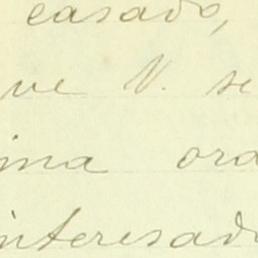 casado,
ve V. se
ma ora
interesado